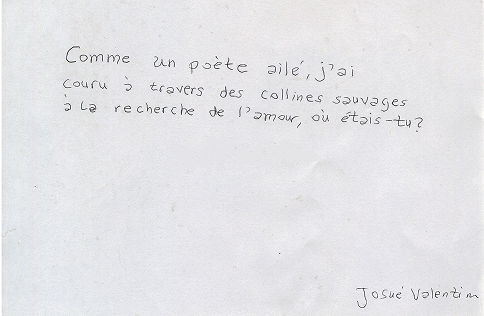 Comme un poète ailé, j'ai
couru à travers des collines sauvages
à la recherche de l'amour, où étais-tu?
Josué Valentim